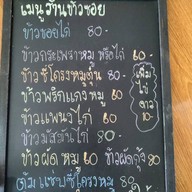 เมนูร้านข้าวซอย
ข้าวซอยไก่ 80.-
ข้าวกระเพราหมู หรือไก่ 60
ข้าวซี่โครงหมูตุ๋น 80-
ข้าวพริกแกงหมู 60-
ข้าวแพนงไก่ 60-
ข้าวมัสมั่นไก่ 80-
ข้าวผัดหมู 60 ข้าวผัดกุ้ง 80
ต้มแซ่บซี่โครงหมู 80
เพิ่ม
ไข่
ดาว
10-